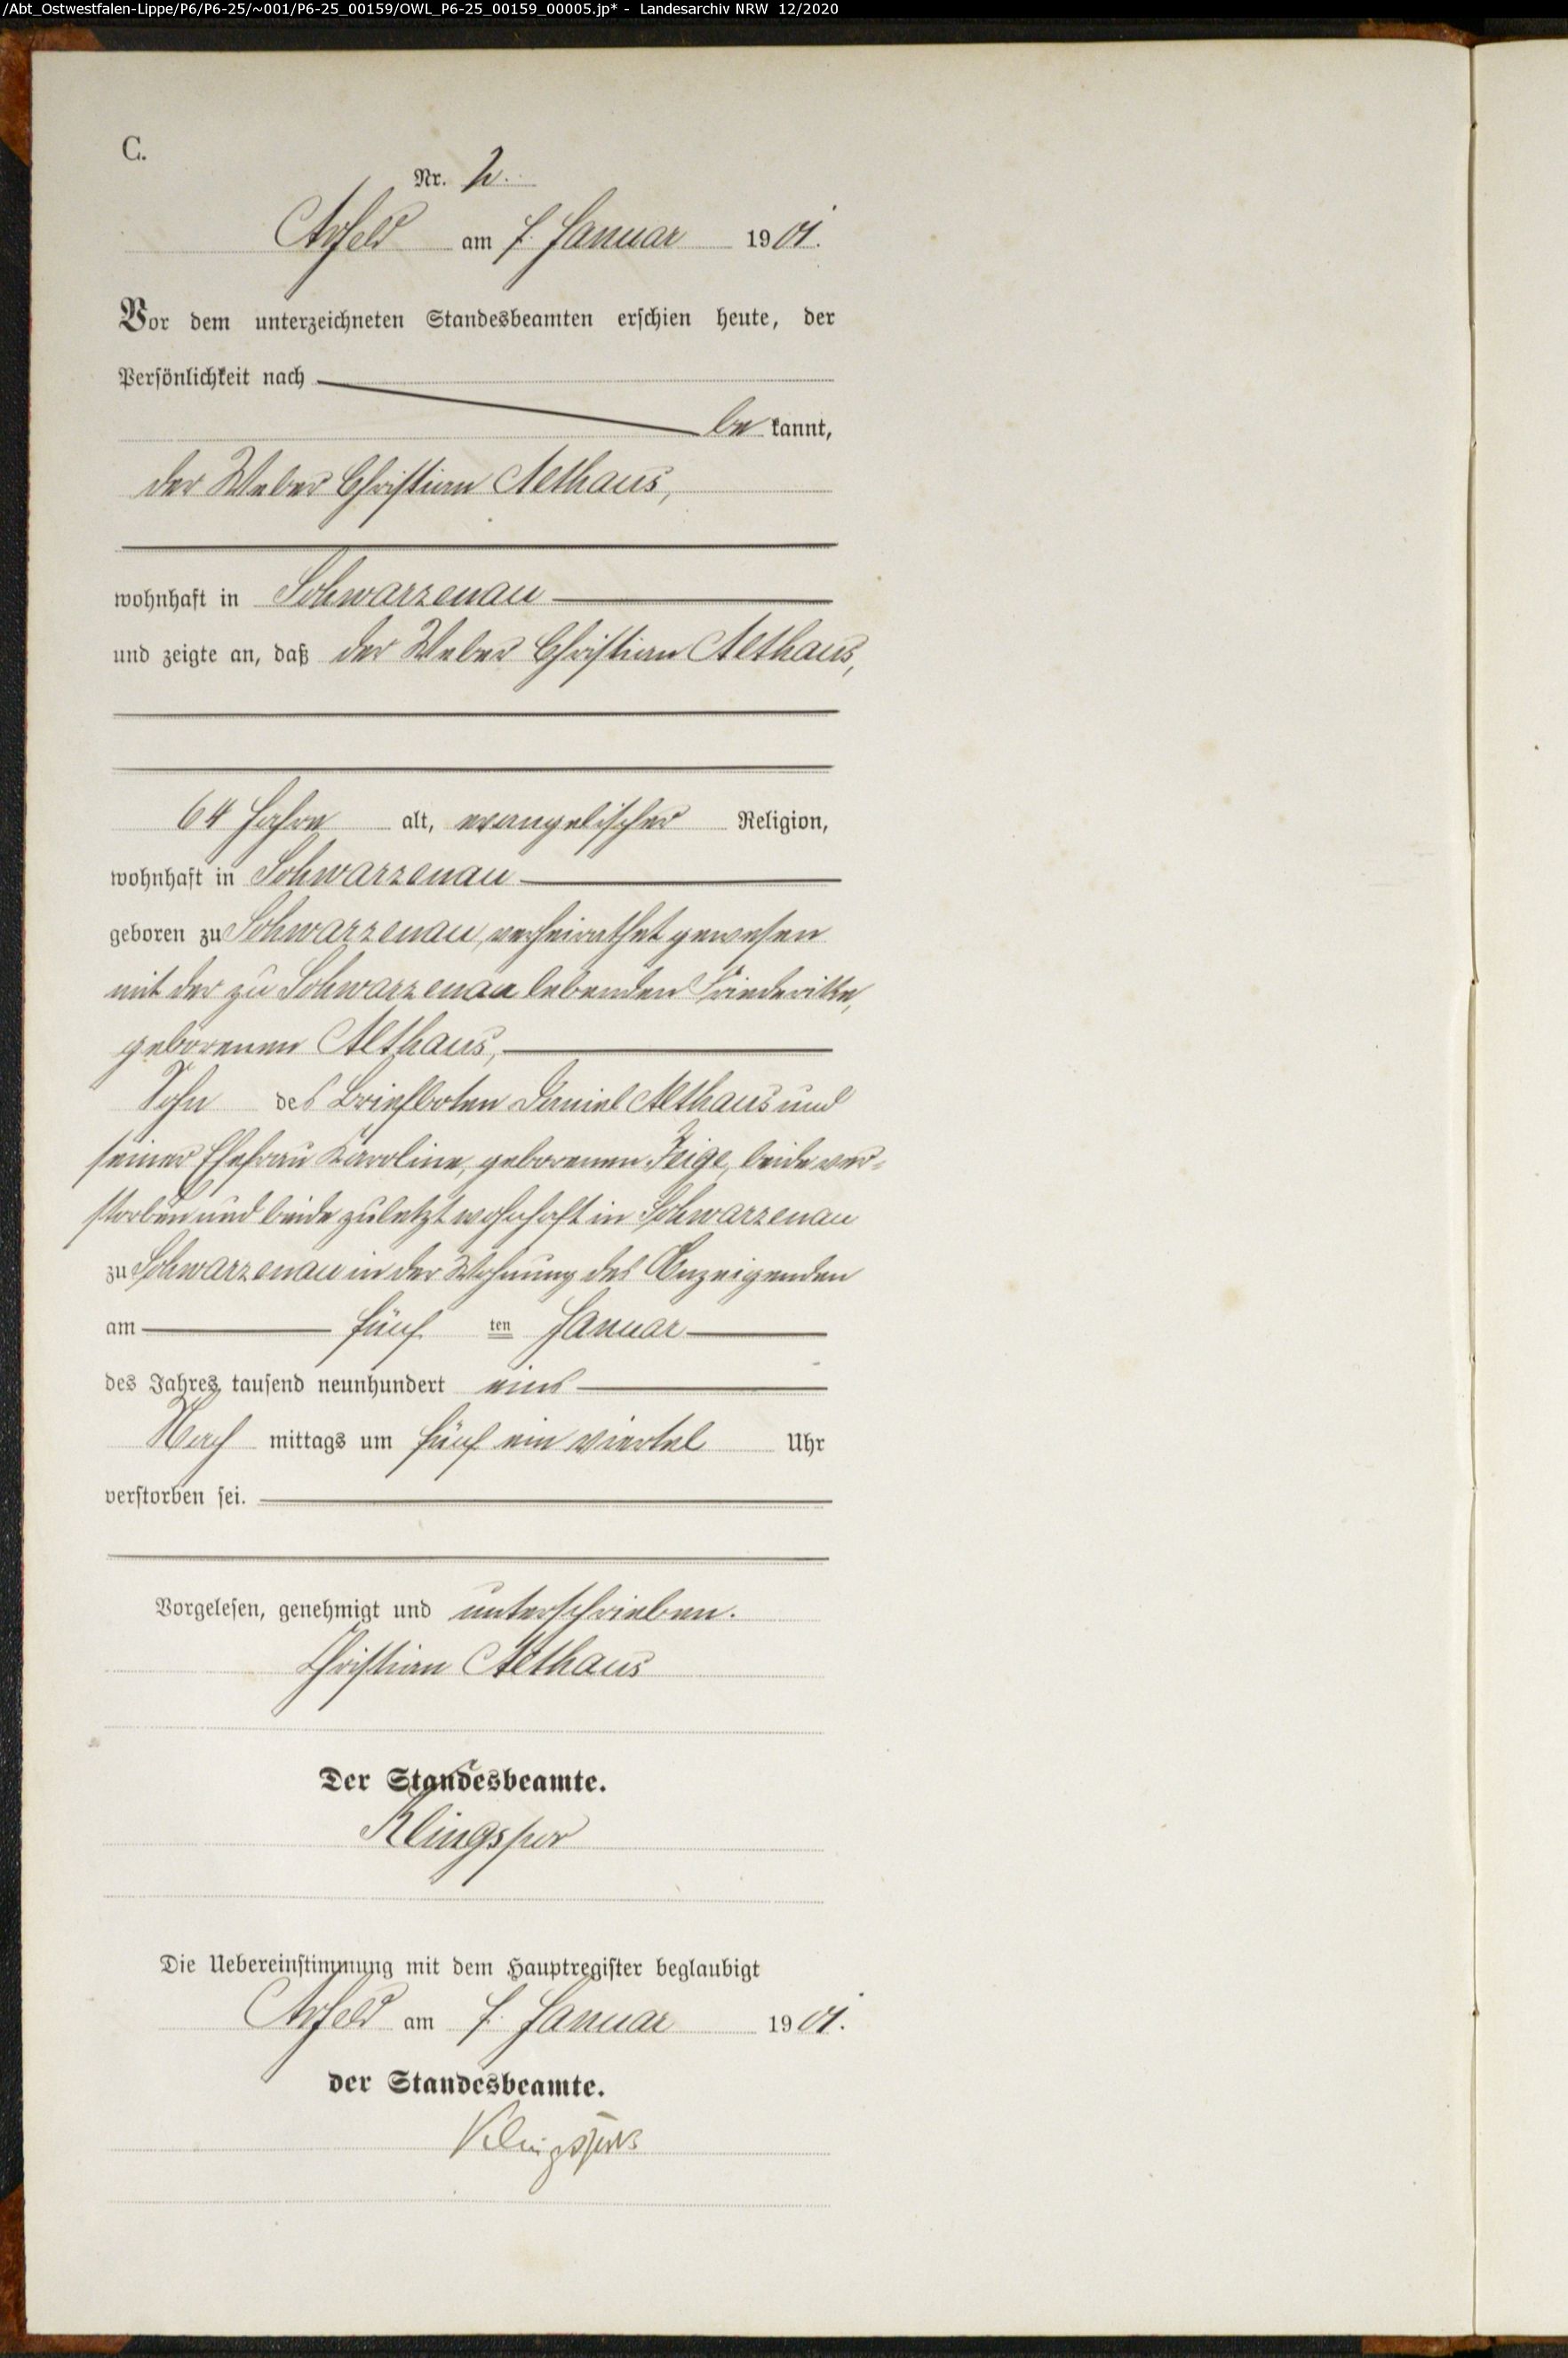 /Abt_Ostwestfalen-Lippe/P6/P6-25/~001/P6-25_00159/OWL_P6-25_00159_00005.jp* - Landesarchiv NRW 12/2020
C.
Nr. 2.
Arfeld am 7. Januar 1901.
Vor dem unterzeichneten Standesbeamten erschien heute, der
Persönlichkeit nach
be kannt,
der Weber Christian Althaus,
wohnhaft in Schwarzenau
und zeigte an, daß der Weber Christian Althaus,
64 Jahre alt, evangelischer Religion,
wohnhaft in Schwarzenau
geboren zu Schwarzenau, verheirathet gewesen
mit der zu Schwarzenau lebenden Friederike,
geborenen Althaus,
Sohn des Briefboten Daniel Althaus und
seiner Ehefrau Karoline, geborenen Feige, beide ver-
storben und beide zuletzt wohnhaft in Schwarzenau
zu Schwarzenau in der Wohnung des Anzeigenden
am fünf ten Januar
des Jahres tausend neunhundert eins
Nach mittags um fünf ein viertel Uhr
verstorben sei.
Vorgelesen, genehmigt und unterschrieben.
Christian Althaus
Der Standesbeamte.
Klingspor
Die Uebereinstimmung mit dem Hauptregister beglaubigt
Arfeld am 7. Januar 1901.
der Standesbeamte.
Klingspor